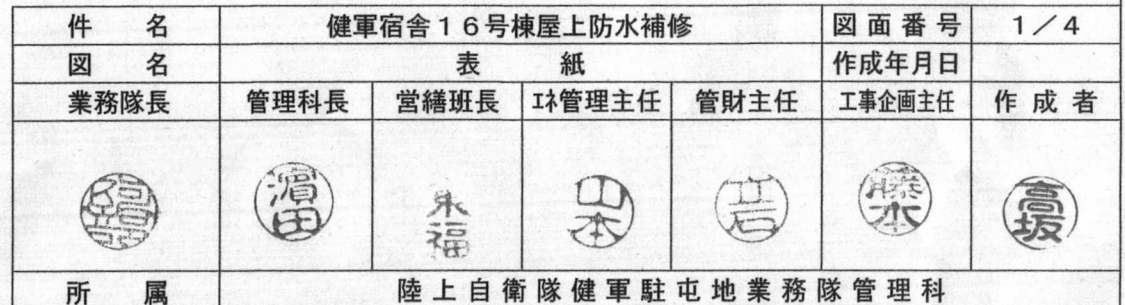 件名 健軍宿舎16号棟屋上防水補修 図面番号 1/4
図名 表紙 作成年月日
業務隊長 管理科長 営繕班長 エネ管理主任 管財主任 工事企画主任 作成者
濵田 永福 山本 藤本 高坂
所属 陸上自衛隊健軍駐屯地業務隊管理科